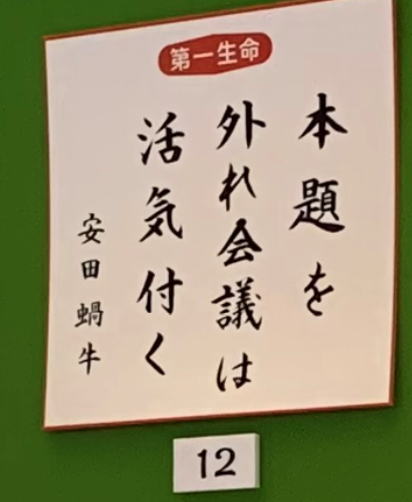 第一生命
本題を
外れ会議は
活気付く
安田蝸牛
12